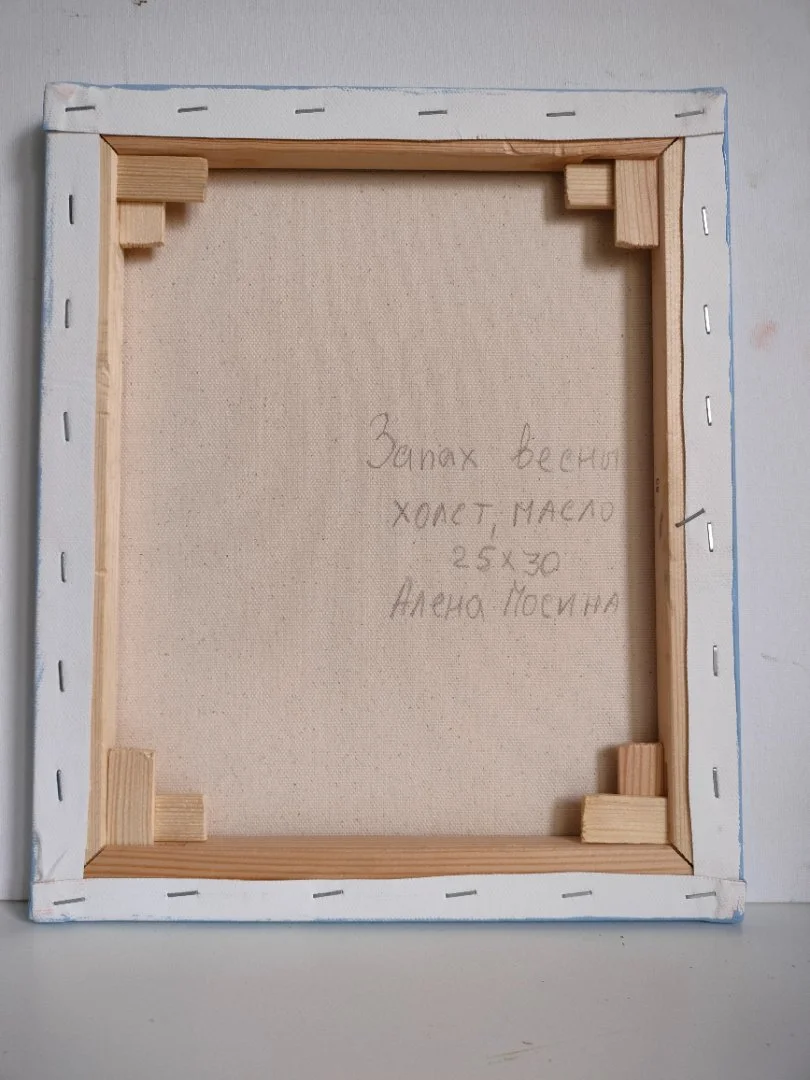 Запах весны
холст, масло
25х30
Алена Мосина